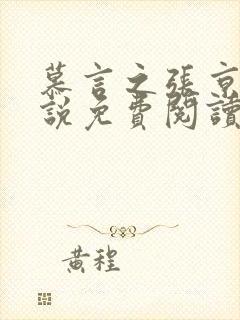 慕言之張京
說免費閱讀
黃程